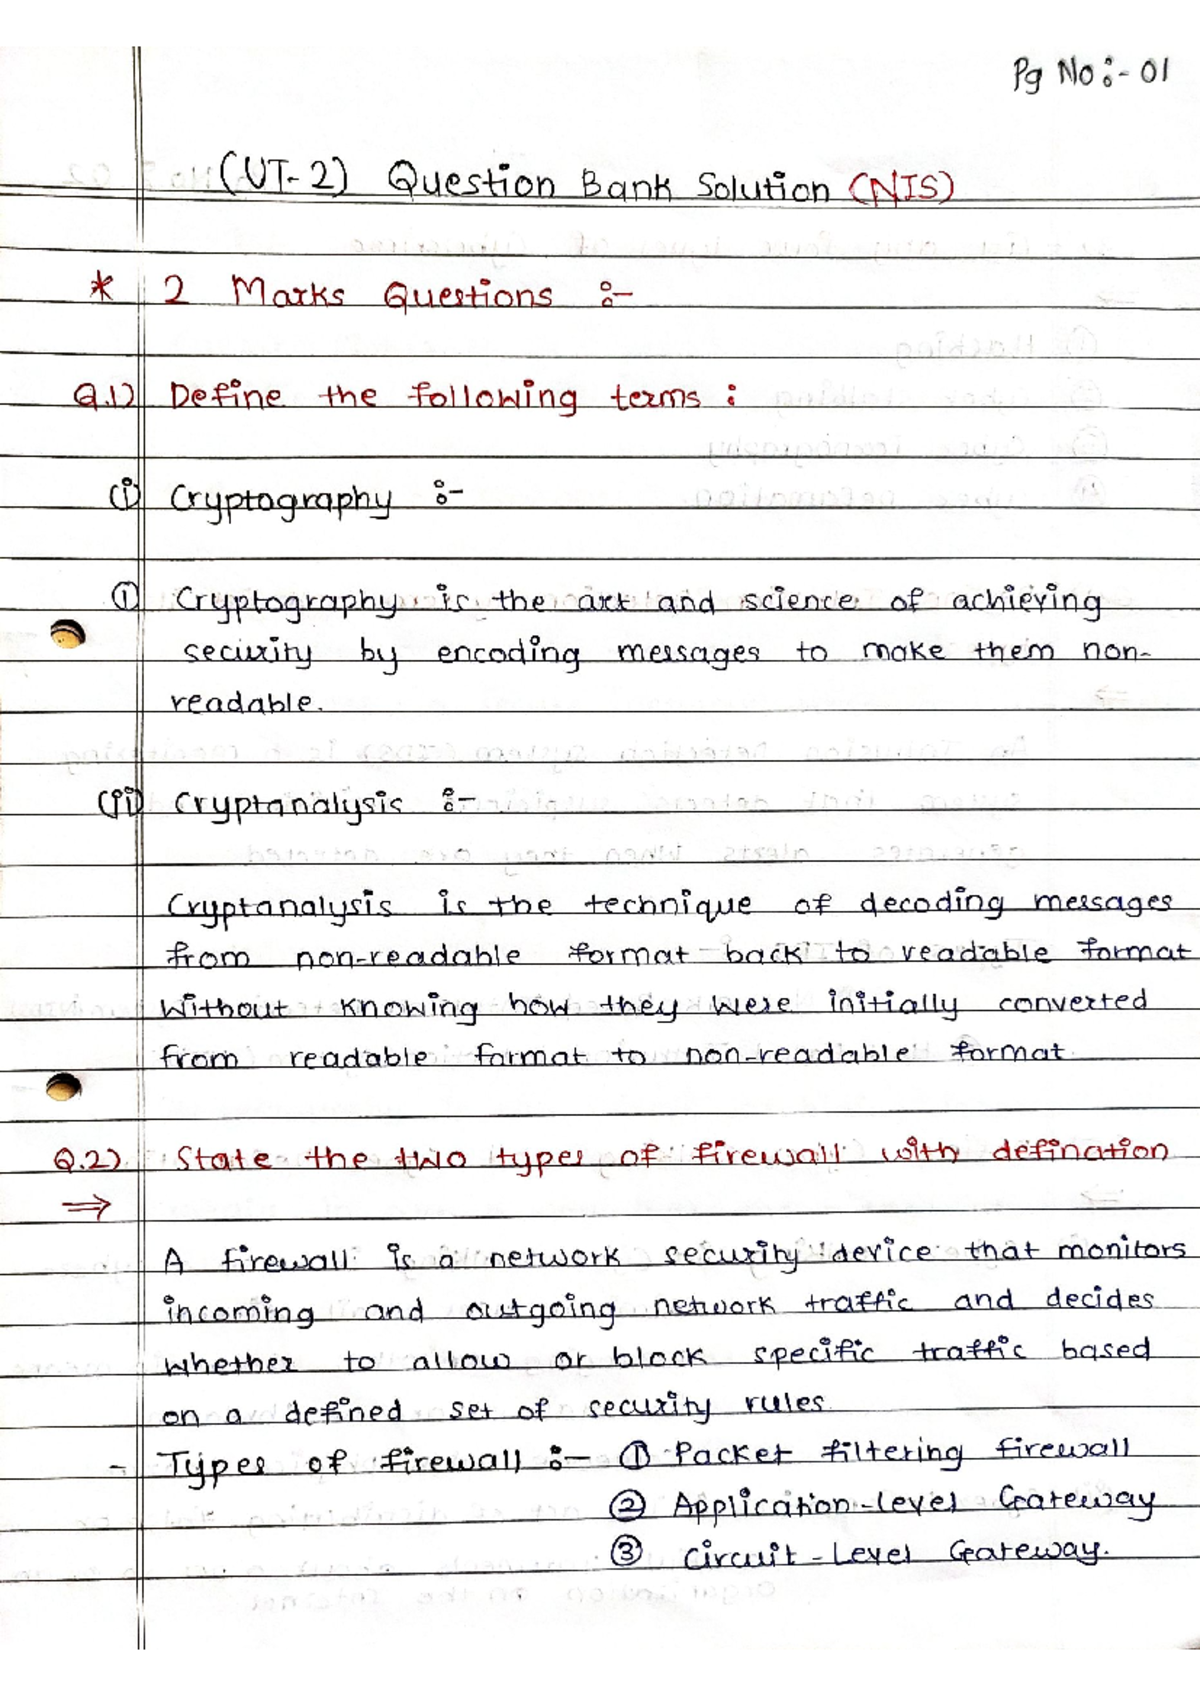 Pg No :- 01
(UT-2) Question Bank Solution (NIS)
* 2 Marks Questions :-
Q.1) Define the following terms :
(i) Cryptography :-
① Cryptography is the art and science of achieving
security by encoding messages to make them non-
readable.
(ii) Cryptanalysis :-
Cryptanalysis is the technique of decoding messages
from non-readable format back to readable format
without knowing how they were initially converted
from readable format to non-readable format.
Q.2) State the two types of firewall with defination
⇒
A firewall is a network security device that monitors
incoming and outgoing network traffic and decides
whether to allow or block specific traffic based
on a defined set of security rules.
- Types of firewall :- ① Packet filtering firewall
② Application-level Gateway
③ Circuit-Level Gateway.